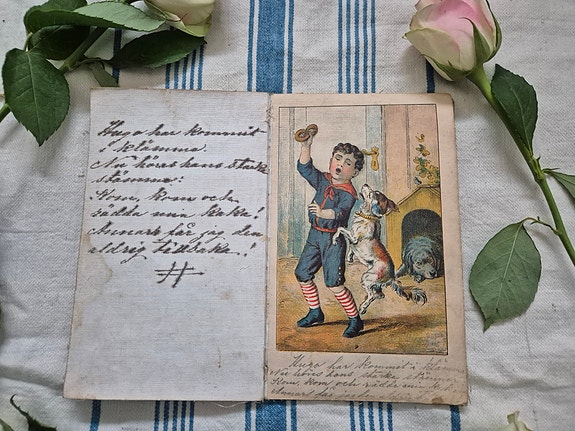 Hugo har kommit
i klämma.
Nu höres hans starka
stämma:
Kom, kom och
rädda min kaka!
Annars får jag den
aldrig tillbaka!
H
Hugo har kommit i kläm
Nu höres hans starka stäm
Kom, kom och rädda min k
Annars får